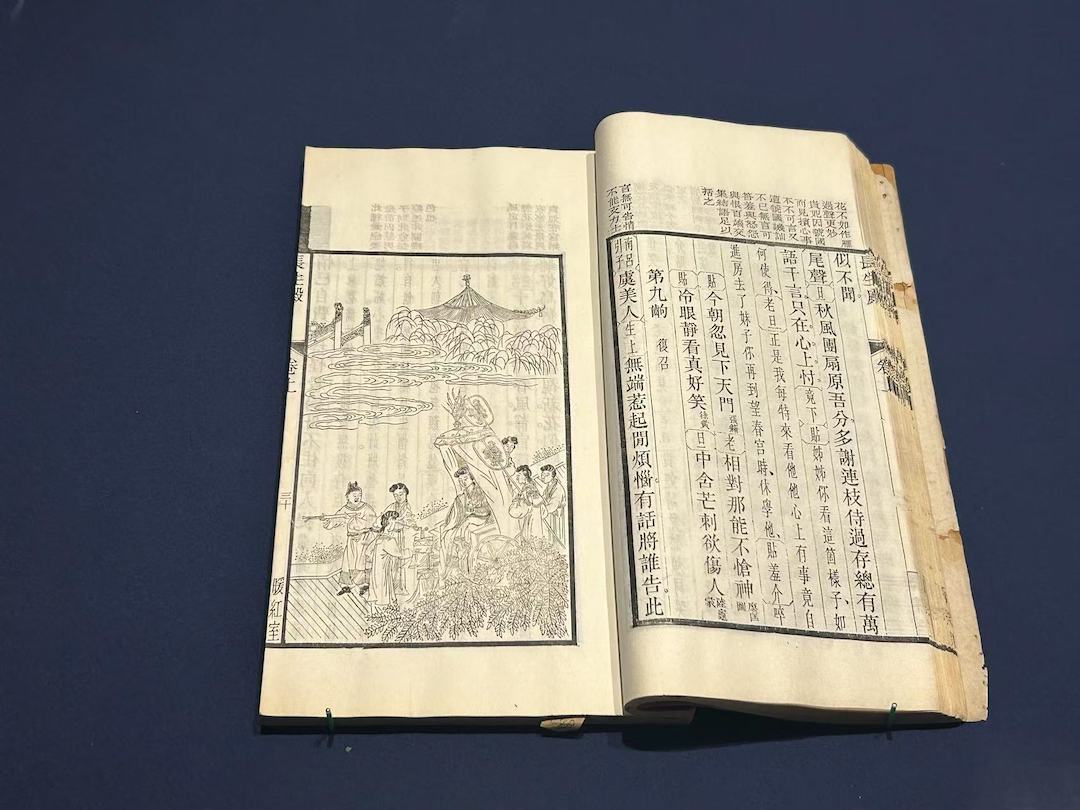 花不如作雁
過聲更妙
貴妃因虢國
而見擯心事
本不可言又
遭虢國譏訕
不已無言可
答羞與怒怨
與恨百端交
集結語足以
括之
言無可告情
長生殿
卷上
似不聞。
尾聲旦秋風團扇原吾分多謝連枝侍過存總有萬
語千言只在心上忖竟下貼姊姊你看這箇樣子、如
何使得、老旦正是我每特來看他他心上有事竟自
進房去了妹子你再到望春宮時、休學他、貼羞介啐
貼今朝忽見下天門張籍老相對那能不愴神廖匡圖
貼冷眼靜看真好笑徐夤旦中含芒刺欲傷人陸龜蒙
第九齣 復召
南呂引子虞美人生上無端惹起閒煩惱有話將誰告。此
長生殿
卷上
三十
暖紅室